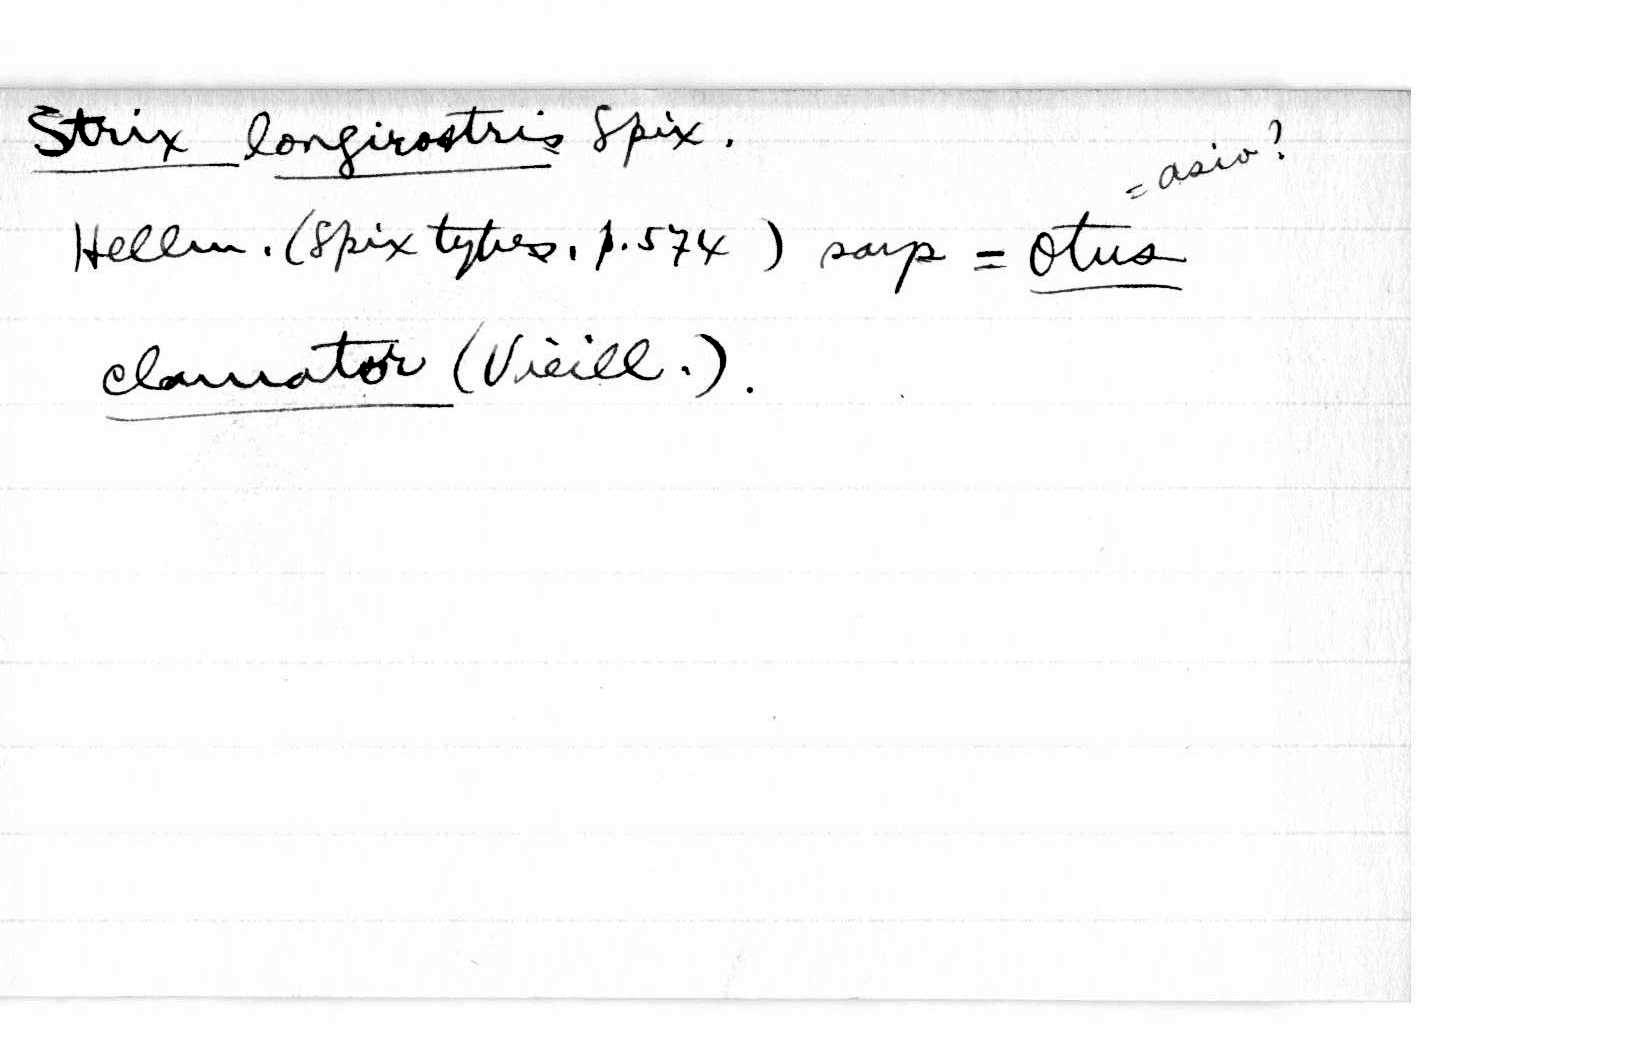 Strix longirostris Spix.
= asio?
Hellm. (Spix types, p. 574) says = Otus
clamator (Vieill.).